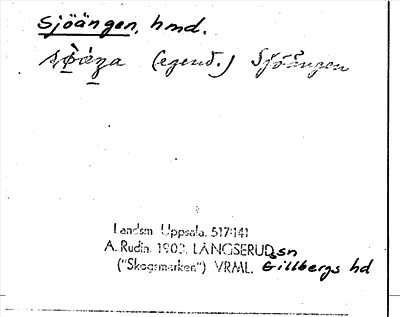 Sjöängen, hmd.
(egend.) Sjöängen
Landsm. Uppsala. 517:141
A. Rudin. 1902. LÅNGSERUDs sn
("Skogsmarken") VRML. Gillbergs hd